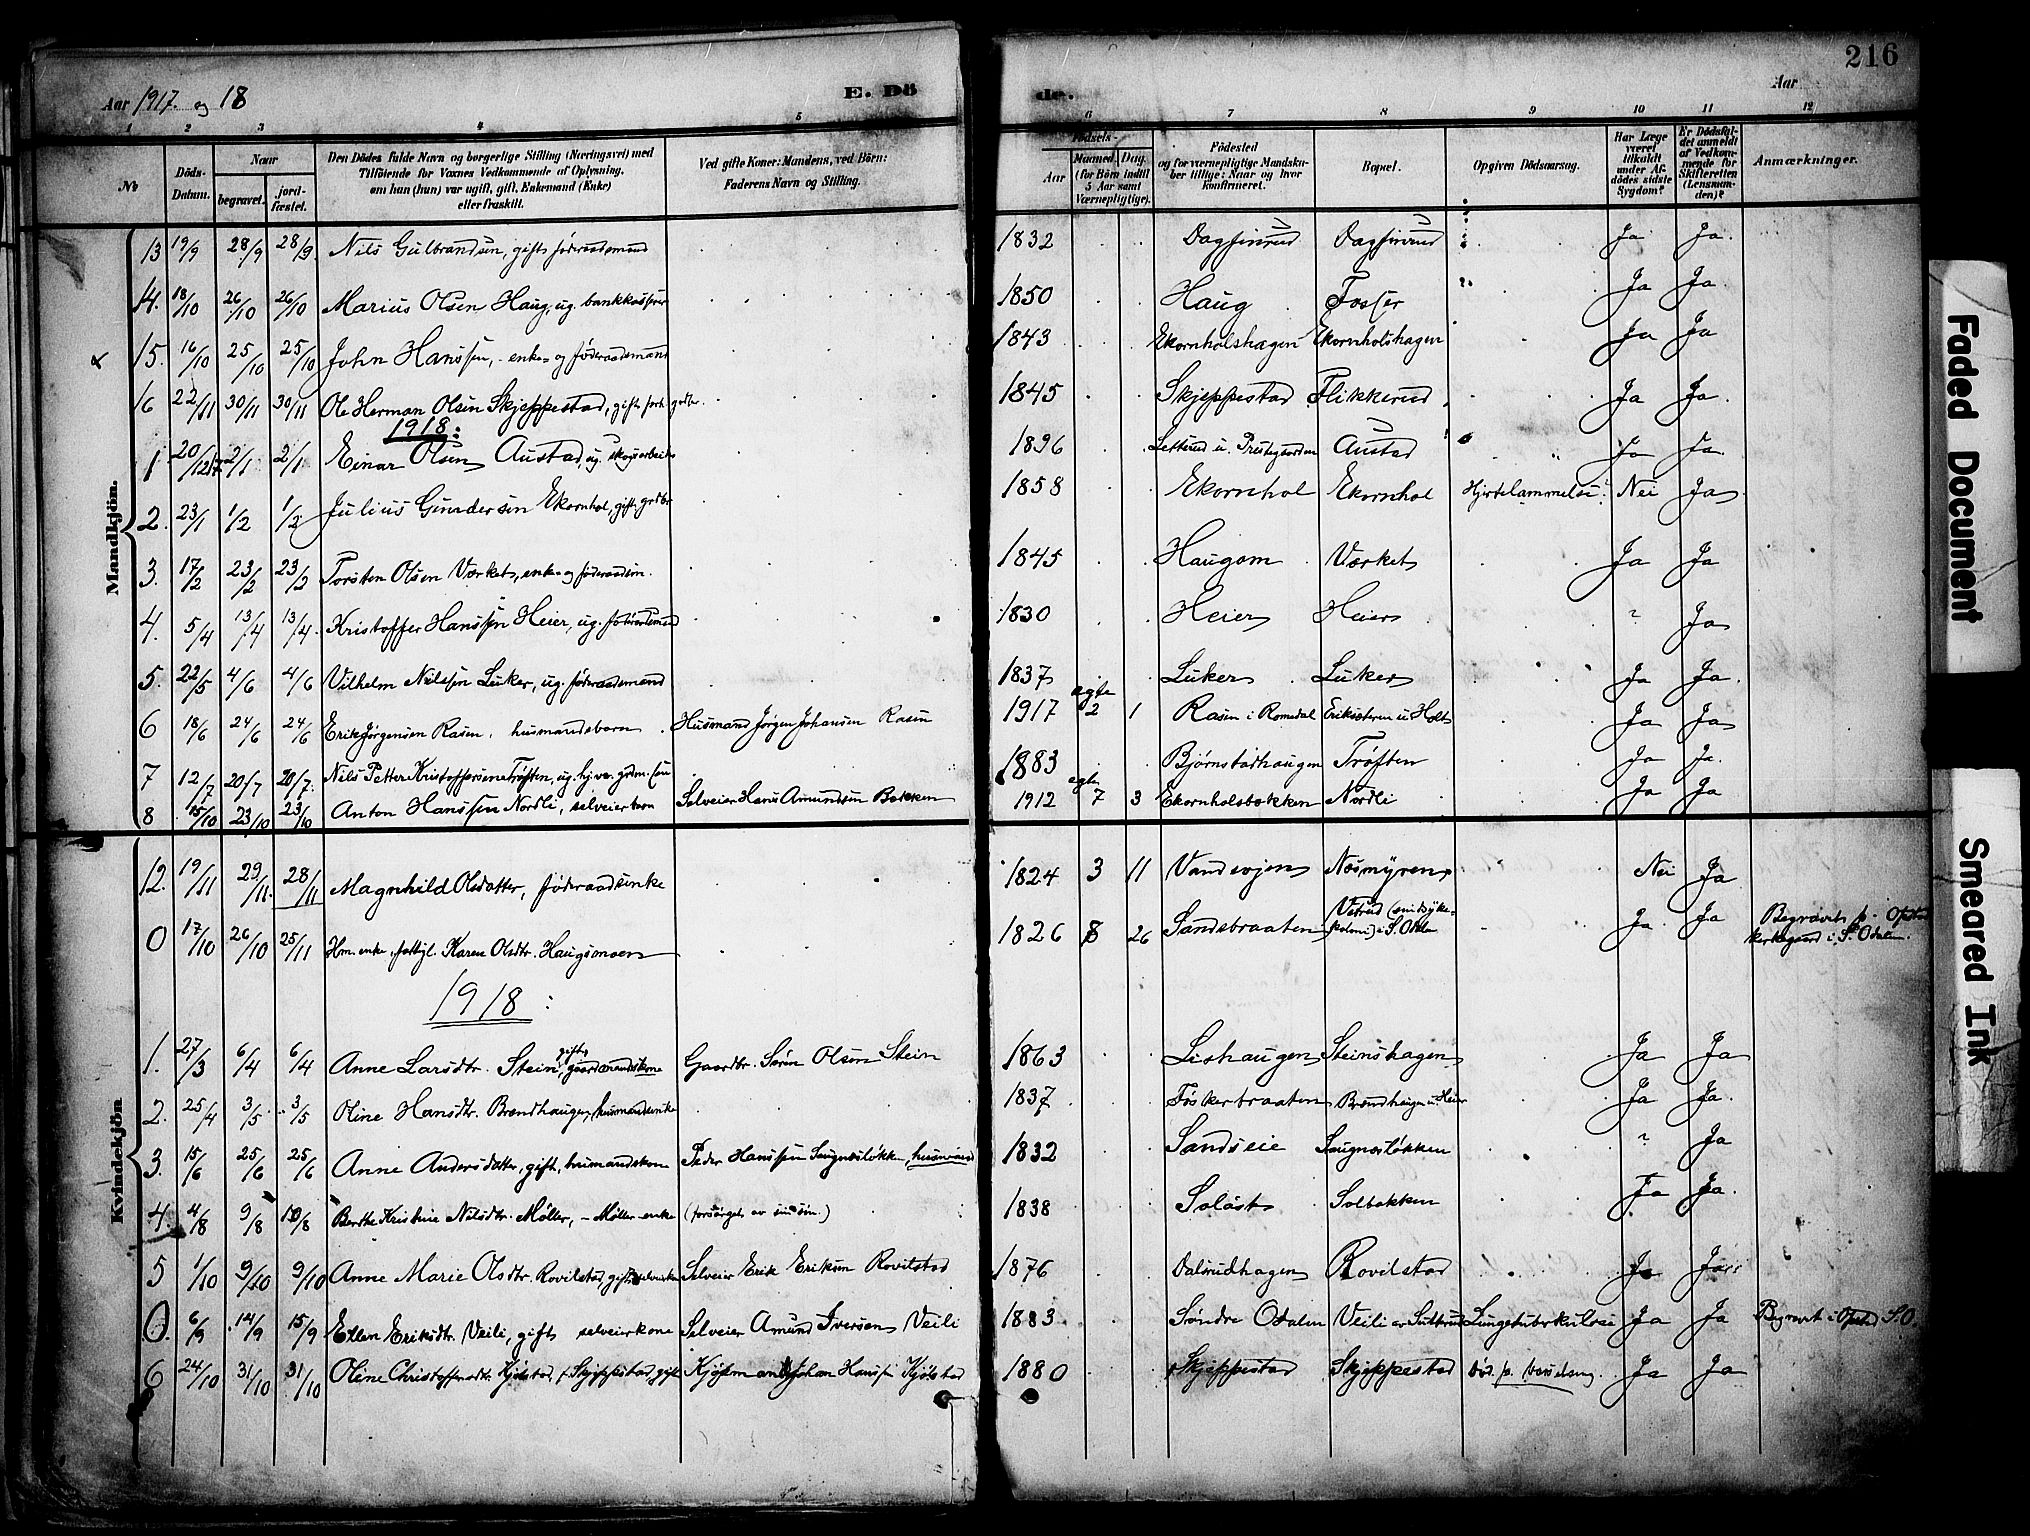 216
Aar 1917. og 18
E. Dö
de.
Aar
1 2 3 4 5 6 7 8 9 10 11 12
№ Döds-Datum. Naar begravet. jord-fæstet. Den Dödes fulde Navn og borgerlige Stilling (Næringsvei) med Tilföiende for Voxnes Vedkommende af Oplysning, om han (hun) var ugift, gift, Enkemand (Enke) eller fraskilt. Ved gifte Koner: Mandens, ved Börn: Faderens Navn og Stilling. Födsels- Aar Maaned. Dag. (for Börn indtil 5 Aar samt Værnepligtige). Födested og for værnepligtige Mandskaber tillige: Naar og hvor konfirmeret. Bopæl. Opgiven Dödsaarsag. Har Læge været tilkaldt under Afdödes sidste Sygdom? Er Dödsfaldet anmeldt af Vedkommende for Skifteretten (Lensmanden)? Anmærkninger.
Mandkjön.
13 19/9 28/9 28/9 Nils Gulbrandsen, gift føderaadsmand 1832 Dagfinrud Dagfinrud Ja Ja
14. 18/10 26/10 26/10 Marius Olsen Haug, ug. bankkasserer 1850 Haug Fosser Ja Ja
15. 16/10 25/10 25/10 John Hanssen, enke- og føderaadsmand 1843 Ekornholshagen Ekornholshagen Ja Ja
16 22/11 30/11 30/11 Ole Herman Olsen Skjeppestad, gift forh. grdbr. 1845 Skjeppestad Flikkerud Ja Ja
1918:
1 20/12 17 2/1 2/1 Einar Olsen Austad, ug. skogsarbeider 1896 Letterud u. Prestegaarden Austad Ja Ja
2. 23/1 1/2 1/2 Julius Gundersen Ekornhol, gift, grdbr 1858 Ekornhol Ekornhol Hjertelammelse Nei Ja
3. 17/2 23/2 23/2 Torsten Olsen Værket, enke- og føderaadsm. 1845 Haugom Værket Ja Ja
4. 5/4 13/4 13/4 Kristoffer Hanssen Heier, ug. føderaadsmand 1830 Heier Heier " Ja
5. 22/5 4/6 4/6 Vilhelm Nilssen Luker, ug. føderaadsmand 1837 Luker Luker Ja Ja
6 18/6 24/6 24/6 Erik Jørgensen Rasen, husmandsbarn Husmand Jørgen Johansen Rasen 1917 egte 2 1 Rasen i Romedal Eriksæteren u. Holt Ja Ja
7 12/7 20/7 20/7 Nils Petter Kristoffersen Trøften, ug. hjv. grdm. søn 1883 Bjørnstadhaugen Trøften Ja Ja
8 15/10 23/10 23/10 Anton Hanssen Nordli, selveierbarn Selveier Hans Amundsen Bakken 1912 egte 7 3 Ekornholsbakken Nordli Ja Ja
Kvindekjön
12. 19/11 29/11. 28/11 Magnhild Olsdatter, føderaadsenke 1824 3 11 Vandvojen Næsmyren Nei Ja
0 17/10 26/10 25/11 Hm. enke, fattigl. Karen Olsdtr. Haugsmoen 1826 8 26 Sandsbraaten i S. Odalen Ja Ja Begravet p. Opstad kirkegaard i S. Odalen.
1918:
1. 27/3 6/4 6/4 Anne Larsdtr. Stein, gift gaardmandskone Gaardbr. Søren Olsen Stein 1863 Lishaugen Steinshagen Ja Ja
2. 25/4 3/5 3/5 Oline Hansdtr. Brændhaugen, husmandsenke 1837 Føskerbraaten Brændhaugen u. Heier Ja Ja
3. 15/6 25/6 25/6 Anne Andersdatter, gift, husmandskone Peder Hanssen Saugnesløkken, husmand 1832 Sandseie Saugnesløkken " Ja
4 4/8 9/8 10/8 Berthe Kristine Nilsdtr. Møller, - Møller-enke (forsørget av sin søn.) 1838 Soløst Solbakken Ja Ja
5 1/10 9/10 9/10 Anne Marie Olsdtr. Rovilstad, gift selveierkone Selveier Erik Eriksen Rovilstad 1876 Dalsrudhagen Rovilstad Ja Ja
0. 6/9 14/9 15/9 Ellen Eriksdtr. Veili, gift selveierkone Selveier Amund Iversen Veili 1883 Søndre Odalen Veili av Sutterud Lungetuberkulose Ja Ja Begravet i Opstad S. O.
6 24/10 31/10 31/10 Oline Christoffersdtr. Kjølstad, f. Skjeppestad, gift Kjøpmand Johan Hanssen Kjølstad 1880 Skjeppestad Skjeppestad Ja Ja
Faded Document
Smeared Ink